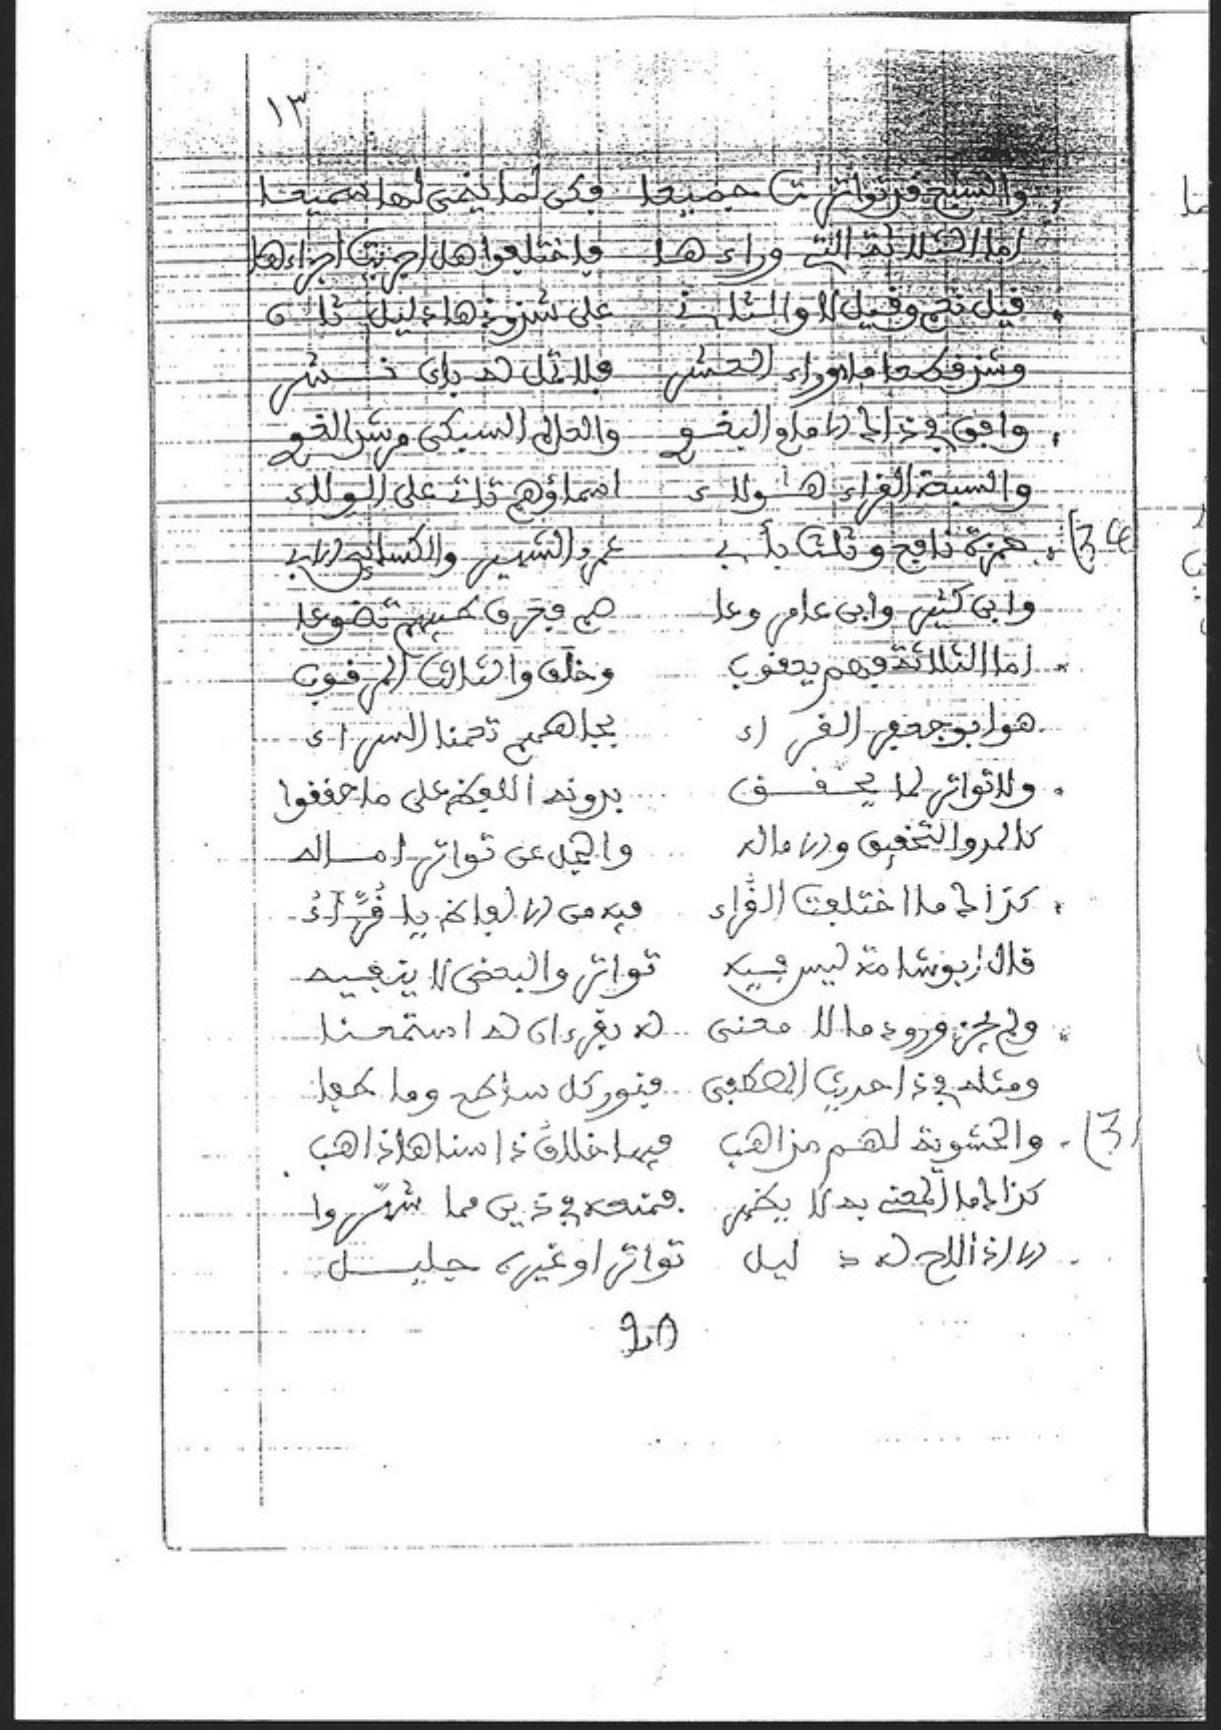 ١٣
والسبع قد تواترت جميعا فكن لما ينمى لها سميعا
اما الثلاثة التي وراءها فاختلفوا هل اجريت اجراءها
فيل نعم وفيل لا والثاني على شذوذها دليل
وشذ فطعا ما وراء العشر فلا تمل له باى
وافق في ذاك الامام البغو والعالم السبكى
والسبعة الفراء هولاء اسماؤهم تات على الولاء
حمزة نافع وتلت بأبي عمرو الشهير والكسائي الابي
وابن كثير وابن عامر وعا صم فعرف طيبهم تضوعا
اما الثلاثة فهم يعفوب وخلف والثالث المرفوب
هو ابو جعفر الفراء بجاههم تعمنا السراء
ولا تواتر لما يحفف بدونه اللفظ على ما حففوا
كالمد والتخفيف والاماله والجل عن تواتر اماله
كذاك ما اختلفت الفراء فيه من الالفاظ يا فراء
فال ابو شامة ليس فيه تواتر والبعض لا ينفيه
ولم يجز ورود ما لا معنى له بفرءان له استمعنا
ومثله في ذا حديث المصطفى فنور كل ساطع وما طفا
والحشوية لهم مذاهب فيها خلاف ذا سناها ذاهب
كذاك ما المعنى به لا يظهر فمنعه في ذين مما شهروا
الا اذا لاح له دليل تواتر او غيره جليل